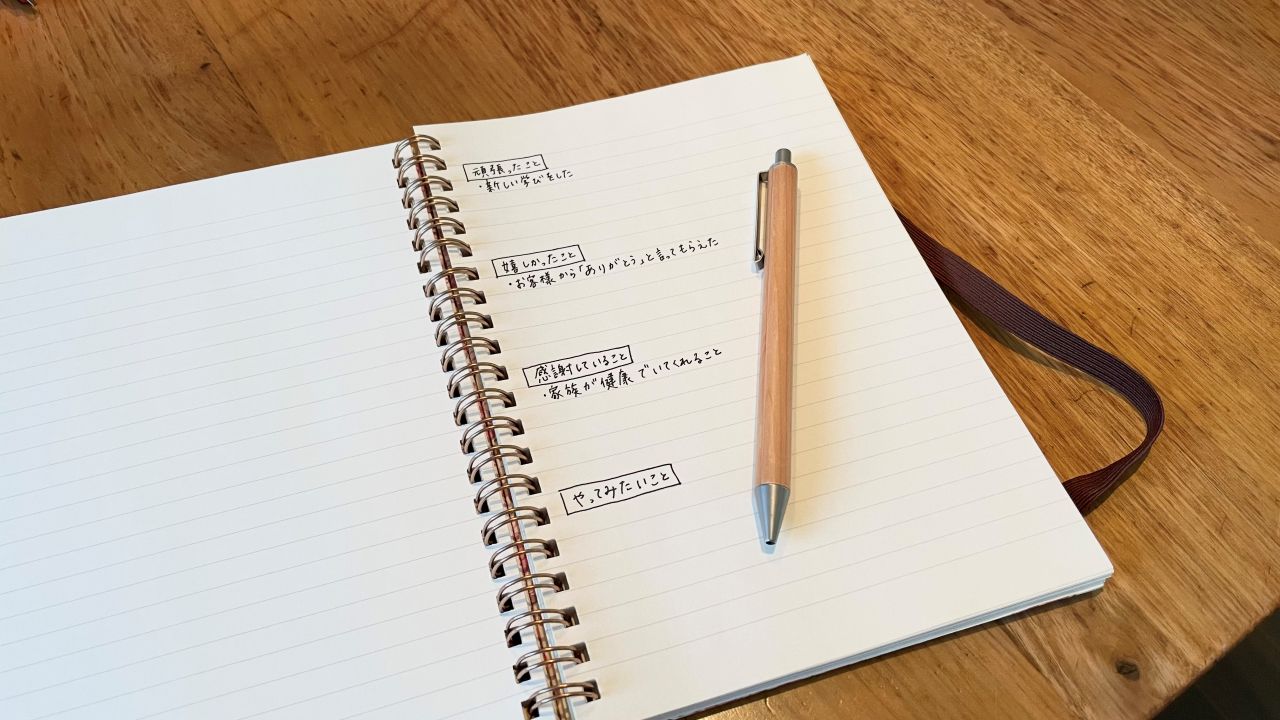 頑張ったこと
・新しい学びをした
嬉しかったこと
・お客様から「ありがとう」と言ってもらえた
感謝していること
・家族が健康でいてくれること
やってみたいこと